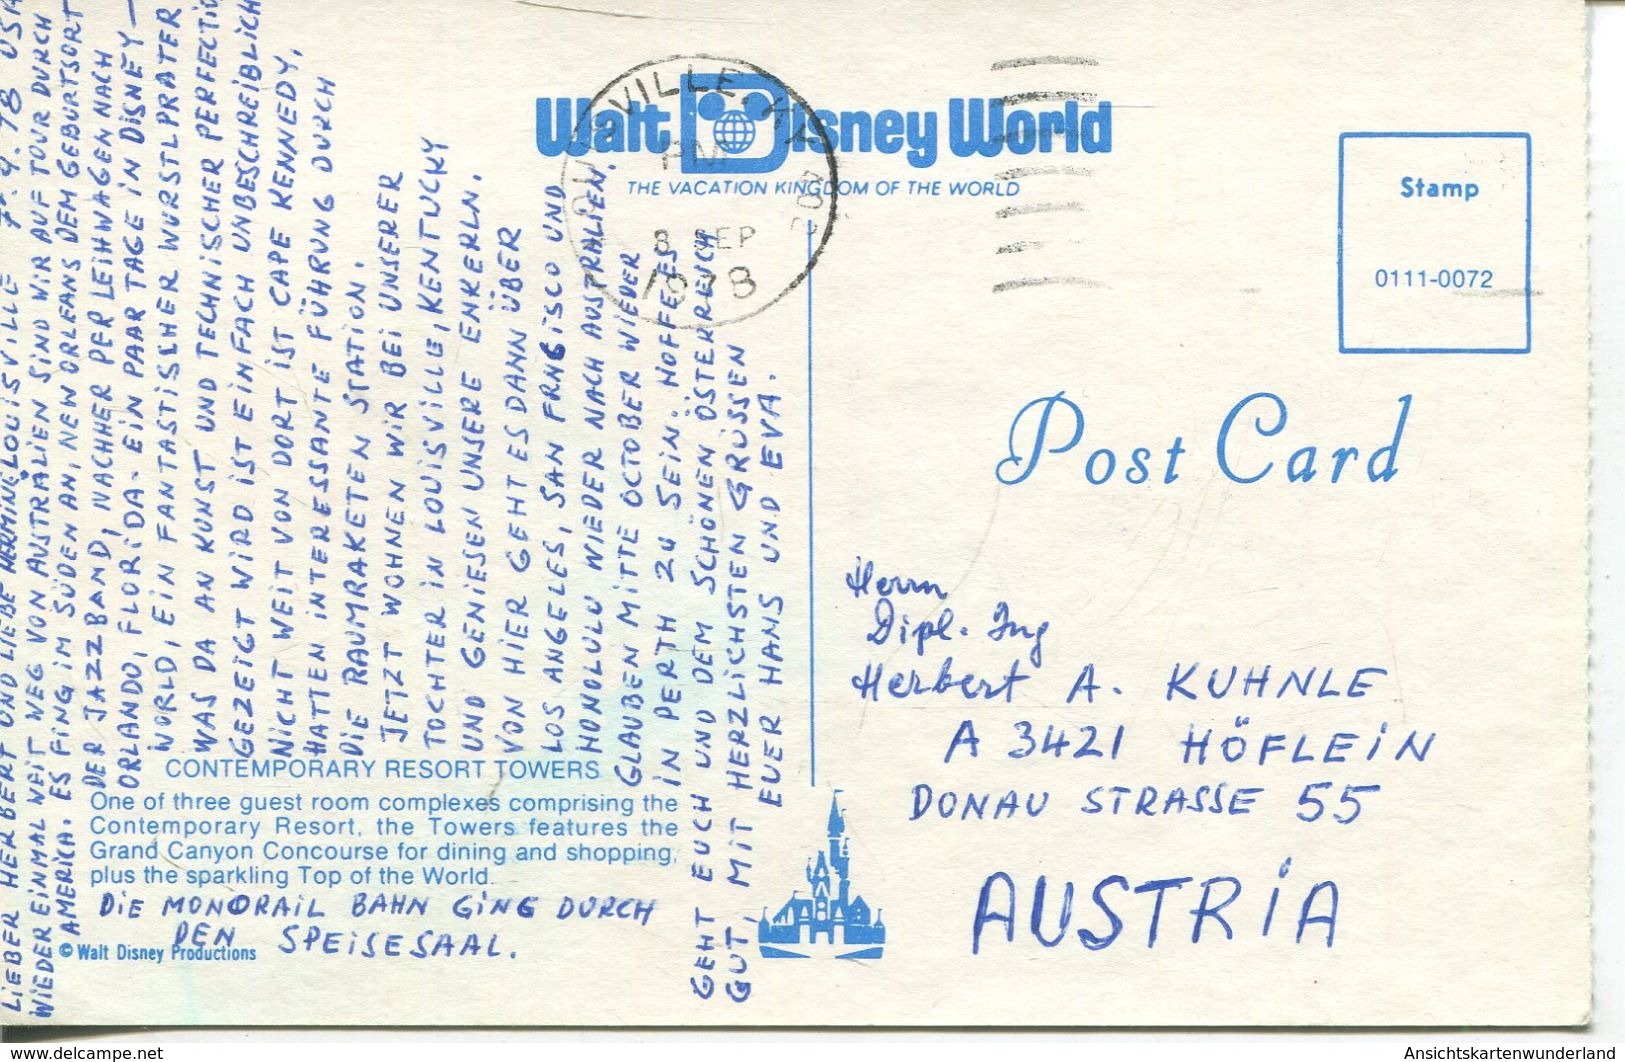 Walt Disney World
THE VACATION KINGDOM OF THE WORLD
LOUISVILLE, KY 402
PM
8 SEP
1978
Stamp
0111-0072
Post Card
LIEBER HERBERT UND LIEBE HERMINE LOUISVILLE 7.9.78 USA
WIEDER EINMAL WEIT WEG VON AUSTRALIEN SIND WIR AUF TOUR DURCH
AMERICA. ES FING IM SÜDEN AN, NEW ORLEANS DEM GEBURTSORT
DER JAZZBAND, NACHHER PER LEIHWAGEN NACH
ORLANDO, FLORIDA. EIN PAAR TAGE IN DISNEY-
WORLD, EIN FANTASTISCHER WURSTLPRATER
WAS DA AN KUNST UND TECHNISCHER PERFECTIO
GEZEIGT WIRD IST EINFACH UNBESCHREIBLICH
NICHT WEIT VON DORT IST CAPE KENNEDY,
HATTEN INTERESSANTE FÜHRUNG DURCH
DIE RAUMRAKETEN STATION.
JETZT WOHNEN WIR BEI UNSERER
TOCHTER IN LOUISVILLE, KENTUCKY
UND GENIESEN UNSERE ENKERLN.
VON HIER GEHT ES DANN ÜBER
LOS ANGELES, SAN FRNCISCO UND
HONOLULU WIEDER NACH AUSTRALIEN.
GLAUBEN MITTE OCTOBER WIEDER
IN PERTH ZU SEIN. HOFFE ES
GEHT EUCH UND DEM SCHÖNEN ÖSTERREICH
GUT, MIT HERZLICHSTEN GRÜSSEN
EUER HANS UND EVA.
CONTEMPORARY RESORT TOWERS
One of three guest room complexes comprising the
Contemporary Resort, the Towers features the
Grand Canyon Concourse for dining and shopping,
plus the sparkling Top of the World.
DIE MONORAIL BAHN GING DURCH
DEN SPEISESAAL.
© Walt Disney Productions
Herrn
Dipl. Ing
Herbert A. KUHNLE
A 3421 HÖFLEIN
DONAU STRASSE 55
AUSTRIA
www.delcampe.net
Ansichtskartenwunderland